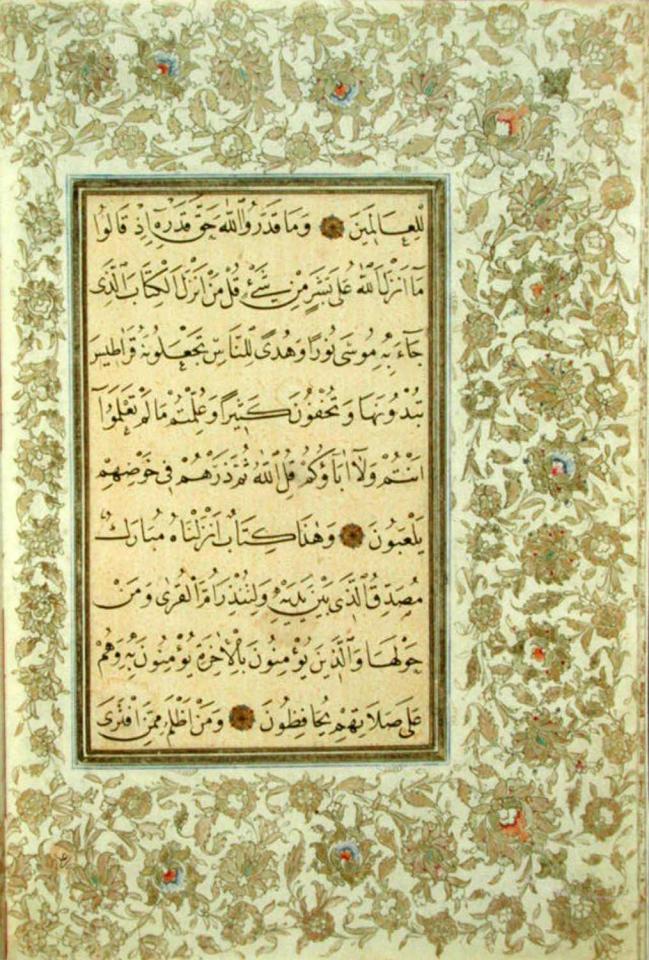 لِلْعَالَمِينَ وَمَا قَدَرُوا اللّٰهَ حَقَّ قَدْرِهِ إِذْ قَالُوا
مَا اَنْزَلَ اللّٰهُ عَلٰى بَشَرٍ مِنْ شَيْءٍ قُلْ مَنْ اَنْزَلَ الْكِتَابَ الَّذِى
جَاءَ بِهِ مُوسٰى نُورًا وَهُدًى لِلنَّاسِ تَجْعَلُونَهُ قَرَاطِيسَ
تُبْدُونَهَا وَتُخْفُونَ كَثِيرًا وَعُلِّمْتُمْ مَا لَمْ تَعْلَمُوا
اَنْتُمْ وَلَا اٰبَاؤُكُمْ قُلِ اللّٰهُ ثُمَّ ذَرْهُمْ فِى خَوْضِهِمْ
يَلْعَبُونَ وَهٰذَا كِتَابٌ اَنْزَلْنَاهُ مُبَارَكٌ
مُصَدِّقُ الَّذِى بَيْنَ يَدَيْهِ وَلِتُنْذِرَ اُمَّ الْقُرٰى وَمَنْ
حَوْلَهَا وَالَّذِينَ يُؤْمِنُونَ بِالْاٰخِرَةِ يُؤْمِنُونَ بِهِ وَهُمْ
عَلٰى صَلَاتِهِمْ يُحَافِظُونَ وَمَنْ اَظْلَمُ مِمَّنِ افْتَرٰى